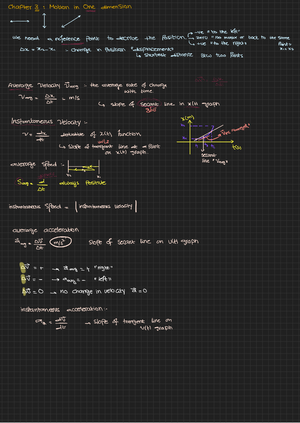 Chapter 2 : Motion in One dimension
-ve "to the left"
we need a reference Point to describe the Position zero "no motion or back to the same Point"
+ve "to the right"
Δx = x₂ - x₁ - change in Position "displacement"
↳ shortest distance btw two Points
Average Velocity V avg - the average rate of change with time
V avg = Δx/Δt = m/s
↳ slope of secant line in x(t) graph
Instantaneous Velocity -
v = dx/dt derivative of x(t) function
m/s
↳ slope of tangent line at a Point on x(t) graph
x(m)
t(s)
secant line "Vavg"
average speed -
Savg = d/Δt always Positive
instantaneous Speed = | instantaneous velocity |
average acceleration
a avg = ΔV/Δt m/s² slope of secant line on v(t) graph
ΔV = + → a avg = + "right"
ΔV = - → a avg = - "left"
ΔV = 0 → no change in velocity a = 0
instantaneous acceleration -
a = dV/dt → slope of tangent line on v(t) graph